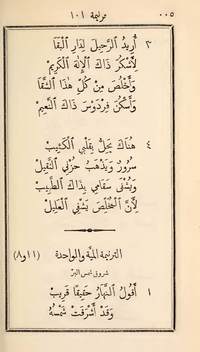 ٠٠٥ مرنيمة ١٠١
٣ أُرِيدُ ٱلرَّحِيلَ لِدَارِ ٱلْبَقَا
لِأَشْكُرَ ذَاكَ ٱلْإِلٰهَ ٱلْكَرِيمْ
وَأَخْلُصَ مِنْ كُلِّ هٰذَا ٱلشَّقَا
وَأَسْكُنَ فِرْدَوْسَ ذَاكَ ٱلنَّعِيمْ
٤ هُنَاكَ يَحُلُّ بِقَلْبِي ٱلْكَئِيبْ
سُرُورٌ وَيَذْهَبُ حُزْنِي ٱلثَّقِيلْ
وَيُشْفَى سَقَامِي بِذَاكَ ٱلطَّبِيبْ
لِأَنَّ ٱلْمُخَلِّصَ يَشْفِي ٱلْعَلِيلْ
الترنيمة المئة والواحدة (١١و٨)
شروق شمس البرّ
١ أَقُولُ ٱلنَّهَارُ حَقِيقًا قَرِيبْ
وَقَدْ أَشْرَقَتْ شَمْسُهُ